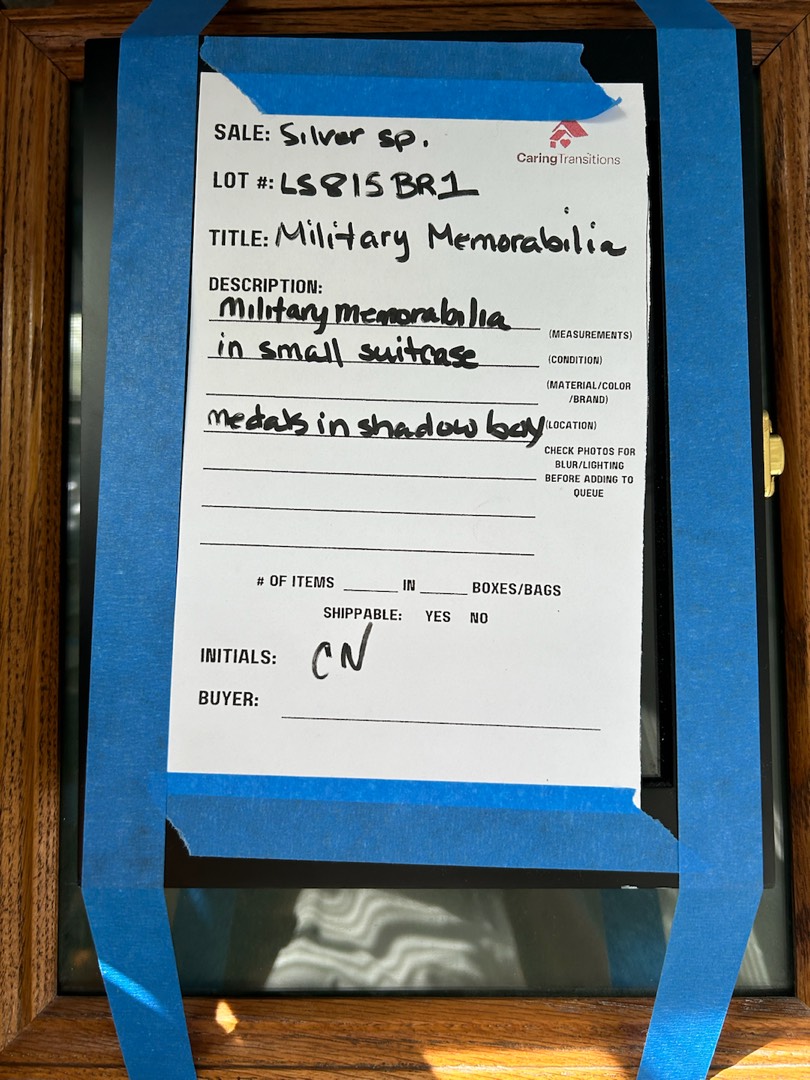 SALE: Silver sp.
CaringTransitions
LOT #: LS815BR1
TITLE: Military Memorabilia
DESCRIPTION:
Military memorabilia
(MEASUREMENTS)
in small suitcase
(CONDITION)
(MATERIAL/COLOR
/BRAND)
medals in shadow box
(LOCATION)
CHECK PHOTOS FOR
BLUR/LIGHTING
BEFORE ADDING TO
QUEUE
# OF ITEMS ______ IN ______ BOXES/BAGS
SHIPPABLE: YES NO
INITIALS: CN
BUYER: